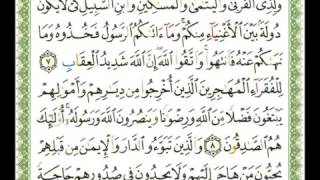 وَلِذِى ٱلْقُرْبَىٰ وَٱلْيَتَٰمَىٰ وَٱلْمَسَٰكِينِ وَٱبْنِ ٱلسَّبِيلِ كَىْ لَا يَكُونَ
دُولَةًۢ بَيْنَ ٱلْأَغْنِيَآءِ مِنكُمْ ۚ وَمَآ ءَاتَىٰكُمُ ٱلرَّسُولُ فَخُذُوهُ وَمَا
نَهَىٰكُمْ عَنْهُ فَٱنتَهُوا۟ ۚ وَٱتَّقُوا۟ ٱللَّهَ ۖ إِنَّ ٱللَّهَ شَدِيدُ ٱلْعِقَابِ ٧
لِلْفُقَرَآءِ ٱلْمُهَٰجِرِينَ ٱلَّذِينَ أُخْرِجُوا۟ مِن دِيَٰرِهِمْ وَأَمْوَٰلِهِمْ
يَبْتَغُونَ فَضْلًا مِّنَ ٱللَّهِ وَرِضْوَٰنًا وَيَنصُرُونَ ٱللَّهَ وَرَسُولَهُۥٓ ۚ أُو۟لَٰٓئِكَ
هُمُ ٱلصَّٰدِقُونَ ٨ وَٱلَّذِينَ تَبَوَّءُو ٱلدَّارَ وَٱلْإِيمَٰنَ مِن قَبْلِهِمْ
يُحِبُّونَ مَنْ هَاجَرَ إِلَيْهِمْ وَلَا يَجِدُونَ فِى صُدُورِهِمْ حَاجَةً